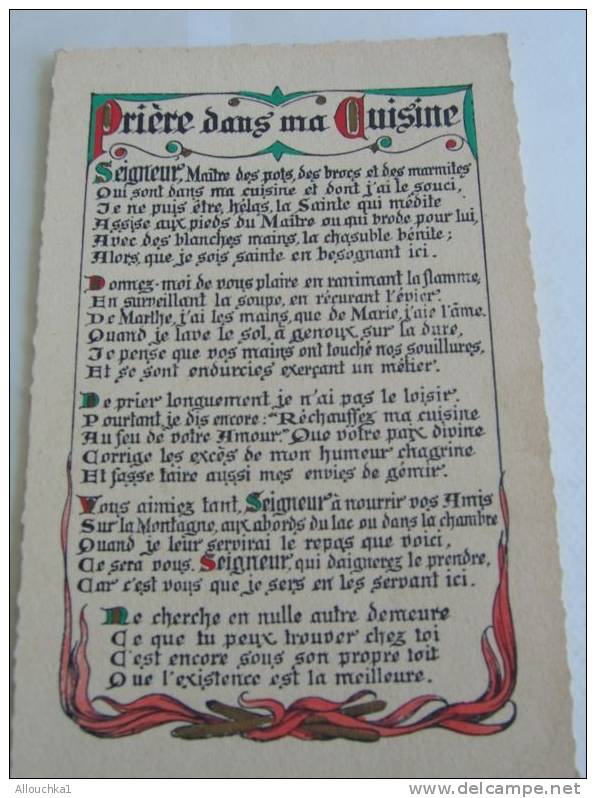 Prière dans ma Cuisine
Seigneur, Maître des pots, des brocs et des marmites
Qui sont dans ma cuisine et dont j'ai le souci,
Je ne puis être, hélas, la Sainte qui médite
Assise aux pieds du Maître ou qui brode pour lui,
Avec des blanches mains, la chasuble bénite ;
Alors, que je sois sainte en besognant ici.
Donnez-moi de vous plaire en ranimant la flamme,
En surveillant la soupe, en récurant l'évier.
De Marthe, j'ai les mains, que de Marie, j'aie l'âme.
Quand je lave le sol, à genoux, sur la dure,
Je pense que vos mains ont touché nos souillures,
Et se sont endurcies exerçant un métier.
De prier longuement je n'ai pas le loisir.
Pourtant je dis encore : "Réchauffez ma cuisine
Au feu de votre Amour." Que votre paix divine
Corrige les excès de mon humeur chagrine
Et fasse taire aussi mes envies de gémir.
Vous aimiez tant, Seigneur à nourrir vos Amis
Sur la Montagne, aux abords du lac ou dans la chambre
Quand je leur servirai le repas que voici,
Ce sera vous, Seigneur, qui daignerez le prendre,
Car c'est vous que je sers en les servant ici.
Ne cherche en nulle autre demeure
Ce que tu peux trouver chez toi
C'est encore sous son propre toit
Que l'existence est la meilleure.
Allouchka1
www.delcampe.net